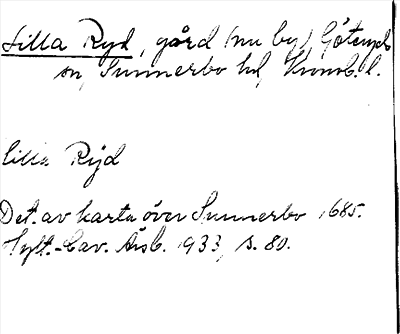 Lilla Ryd, gård (nu by) Göteryds
sn, Sunnerbo hd, Kronob. l.
Lilla Rÿd
Det. av karta över Sunnerbo 1685.
Hylt.-Cav. Årsb. 1933, s. 80.